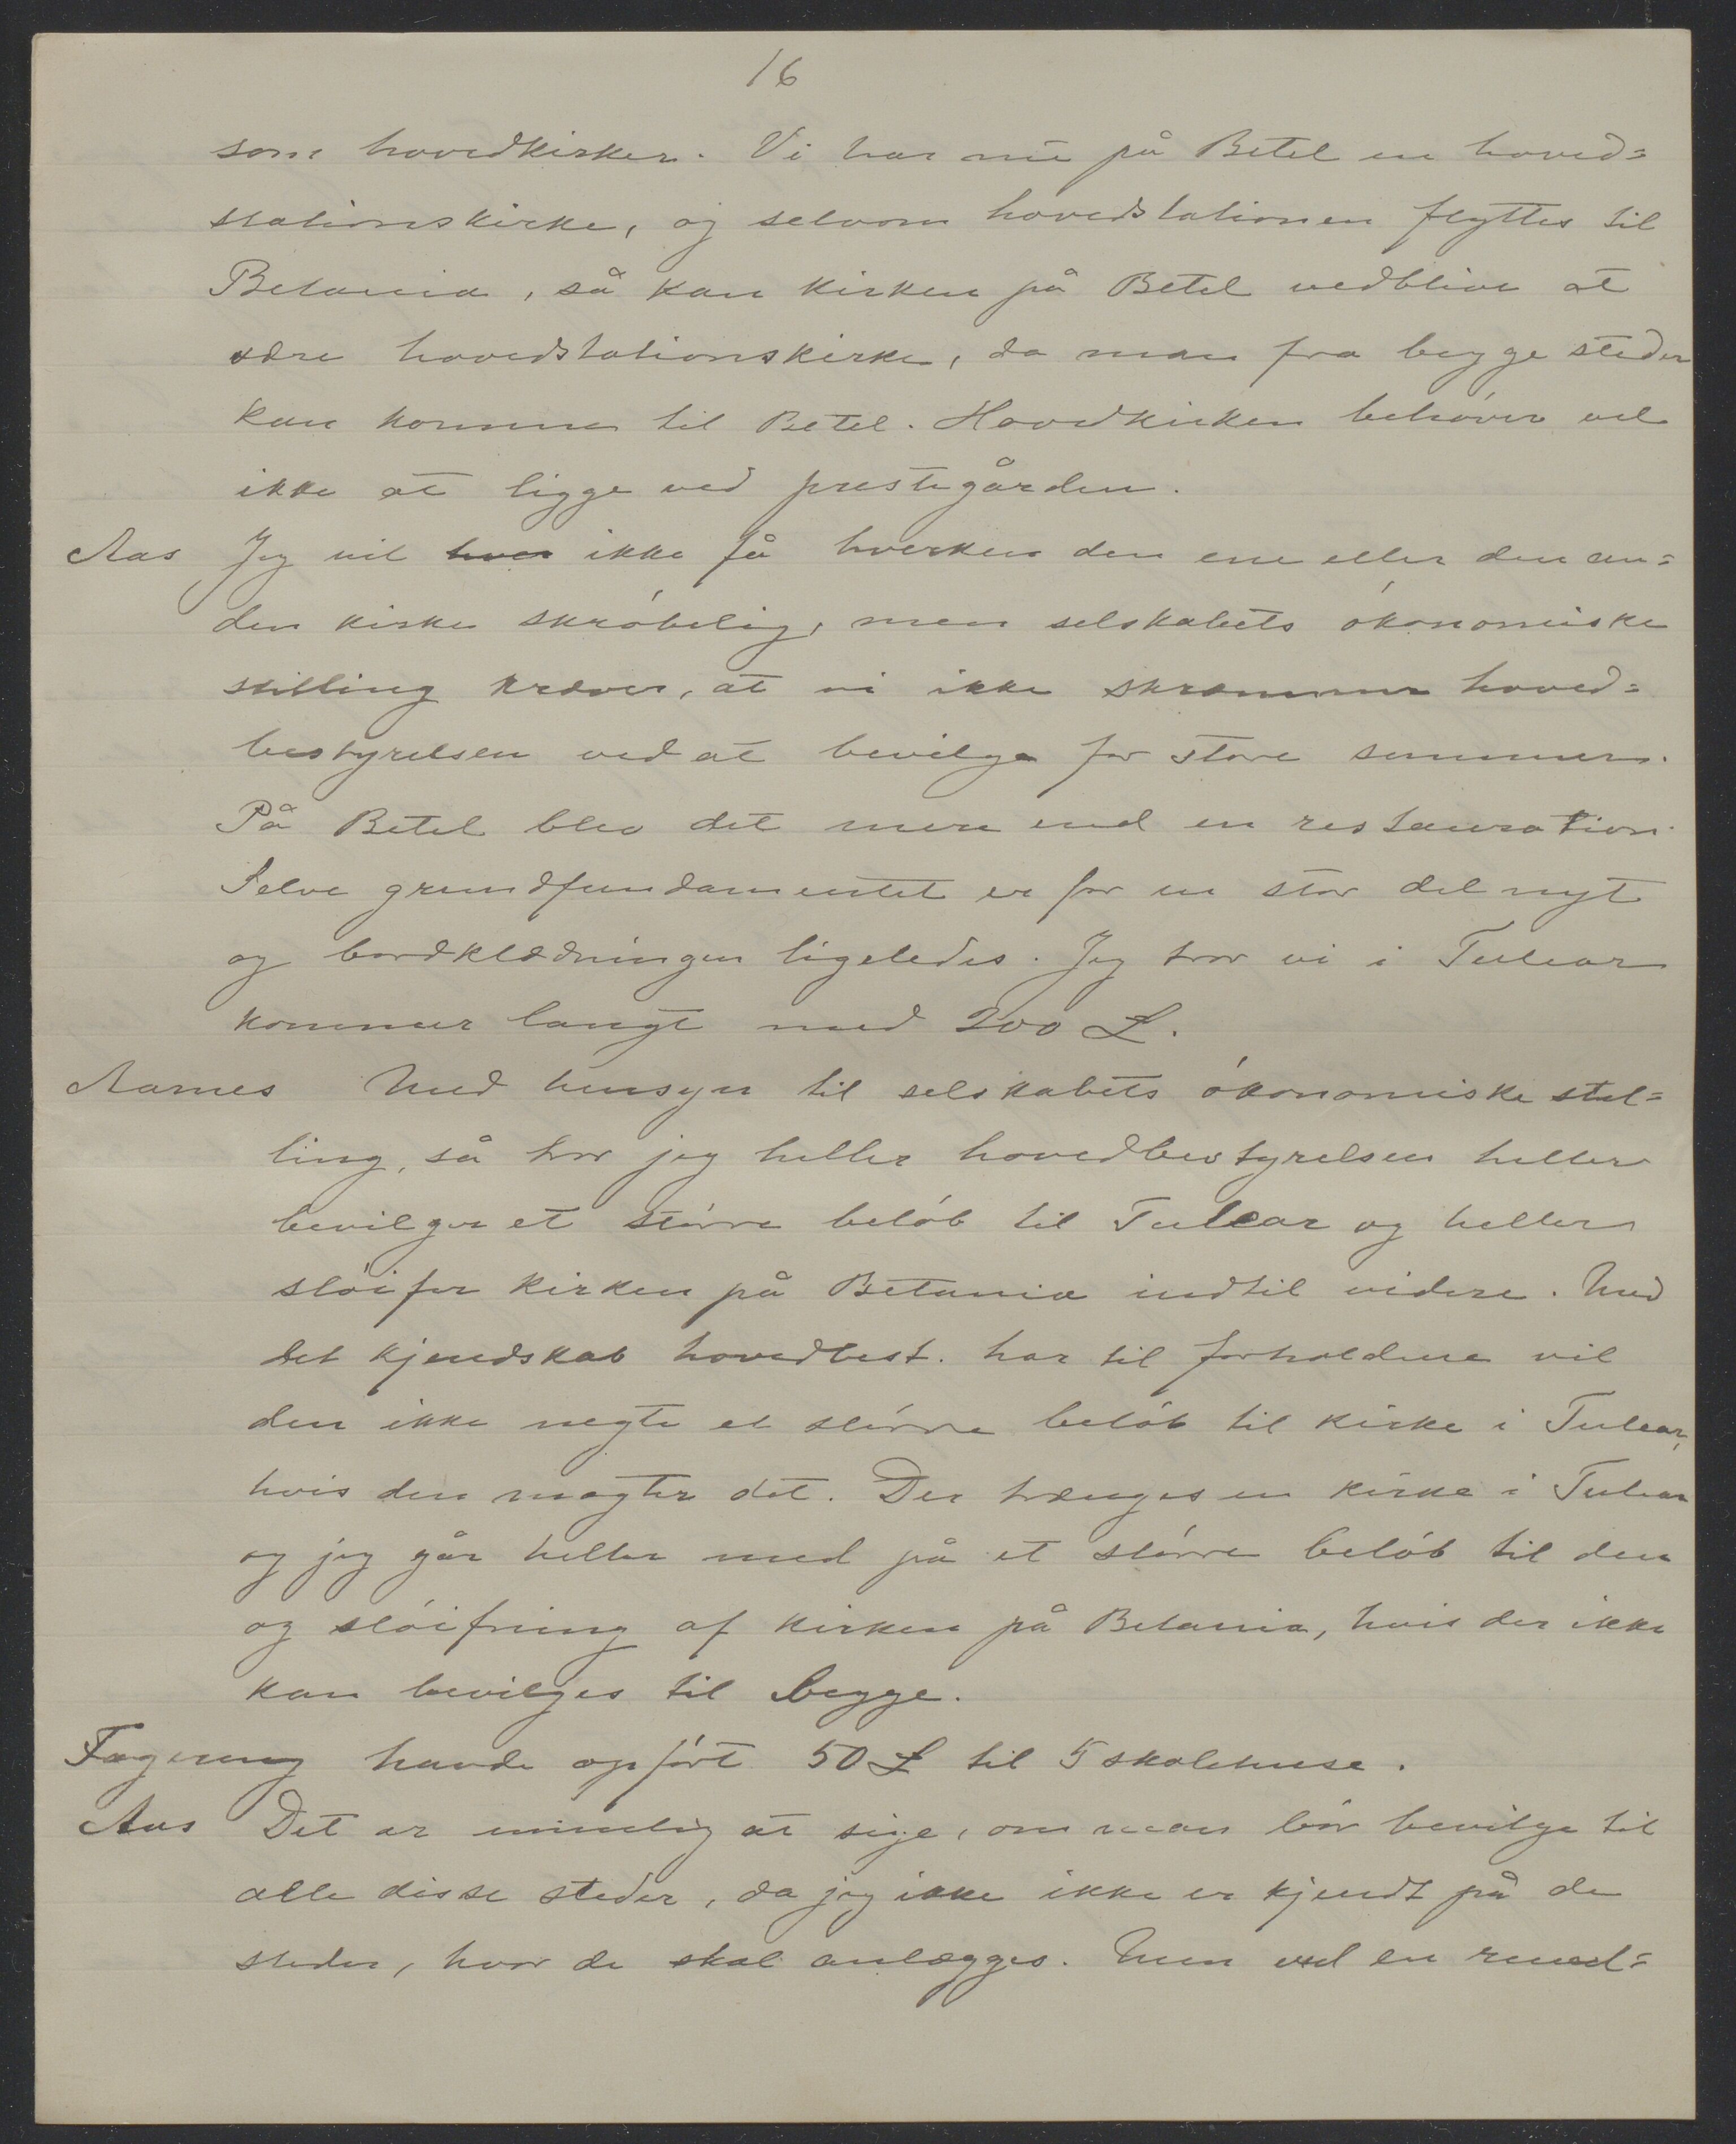 16
som hovedkirker. Vi har nu på Betel en hoved=
stationskirke, og selvom hovedstationen flyttes til
Betania, så kan kirken på Betel vedblive at
være hovedstationskirke, da man fra begge steder
kan komme til Betel. Hovedkirken behöver vel
ikke at ligge ved prestegården.
Aas Jeg vil hver ikke få hverken den ene eller den an=
den kirke skröbelig, men selskabets ökonomiske
stilling kræver, at vi ikke skræmmer hoved=
bestyrelsen ved at bevilge for store summer.
På Betel blev det mere end en restauration.
Selve grundfundamentet er for en stor del nyt
og bordklædningen ligeledes. Jeg tror vi i Tulear
kommer langt med 200 £.
Aarnes Med hensyn til selskabets ökonomiske stil=
ling, så tror jeg heller hovedbestyrelsen heller
bevilger et större belöb til Tulear og heller
slöifer kirken på Betania indtil videre. Med
det kjendskab hovedbest. har til forholdene vil
den ikke negte et större belöb til kirke i Tulear,
hvis den magter det. Der trænges en kirke i Tulear
og jeg går heller med på et större belöb til den
og slöifning af kirken på Betania, hvis der ikke
kan bevilges til begge.
Fagereng havde opfört 50 £ til 5 skolehuse.
Aas Det er umulig at sige, om man bör bevilge til
alle disse steder, da jeg ikke ikke er kjendt på de
steder, hvor de skal anlægges. Men ved en rund=